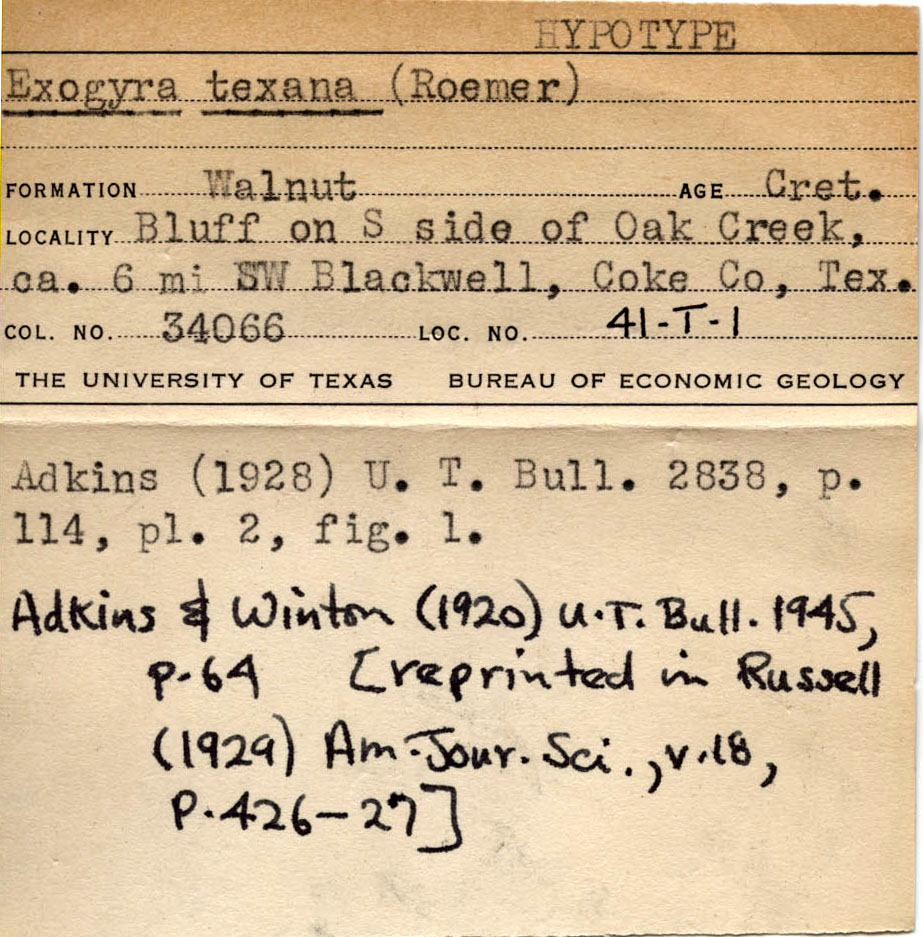 HYPOTYPE
Exogyra texana (Roemer)
FORMATION Walnut AGE Cret.
LOCALITY Bluff on S side of Oak Creek,
ca. 6 mi SW Blackwell, Coke Co, Tex.
COL. NO. 34066 LOC. NO. 41-T-1
THE UNIVERSITY OF TEXAS BUREAU OF ECONOMIC GEOLOGY
Adkins (1928) U. T. Bull. 2838, p.
114, pl. 2, fig. 1.
Adkins & Winton (1920) U.T. Bull. 1945,
p.64 [reprinted in Russell
(1929) Am. Jour. Sci., v.18,
p.426-27]